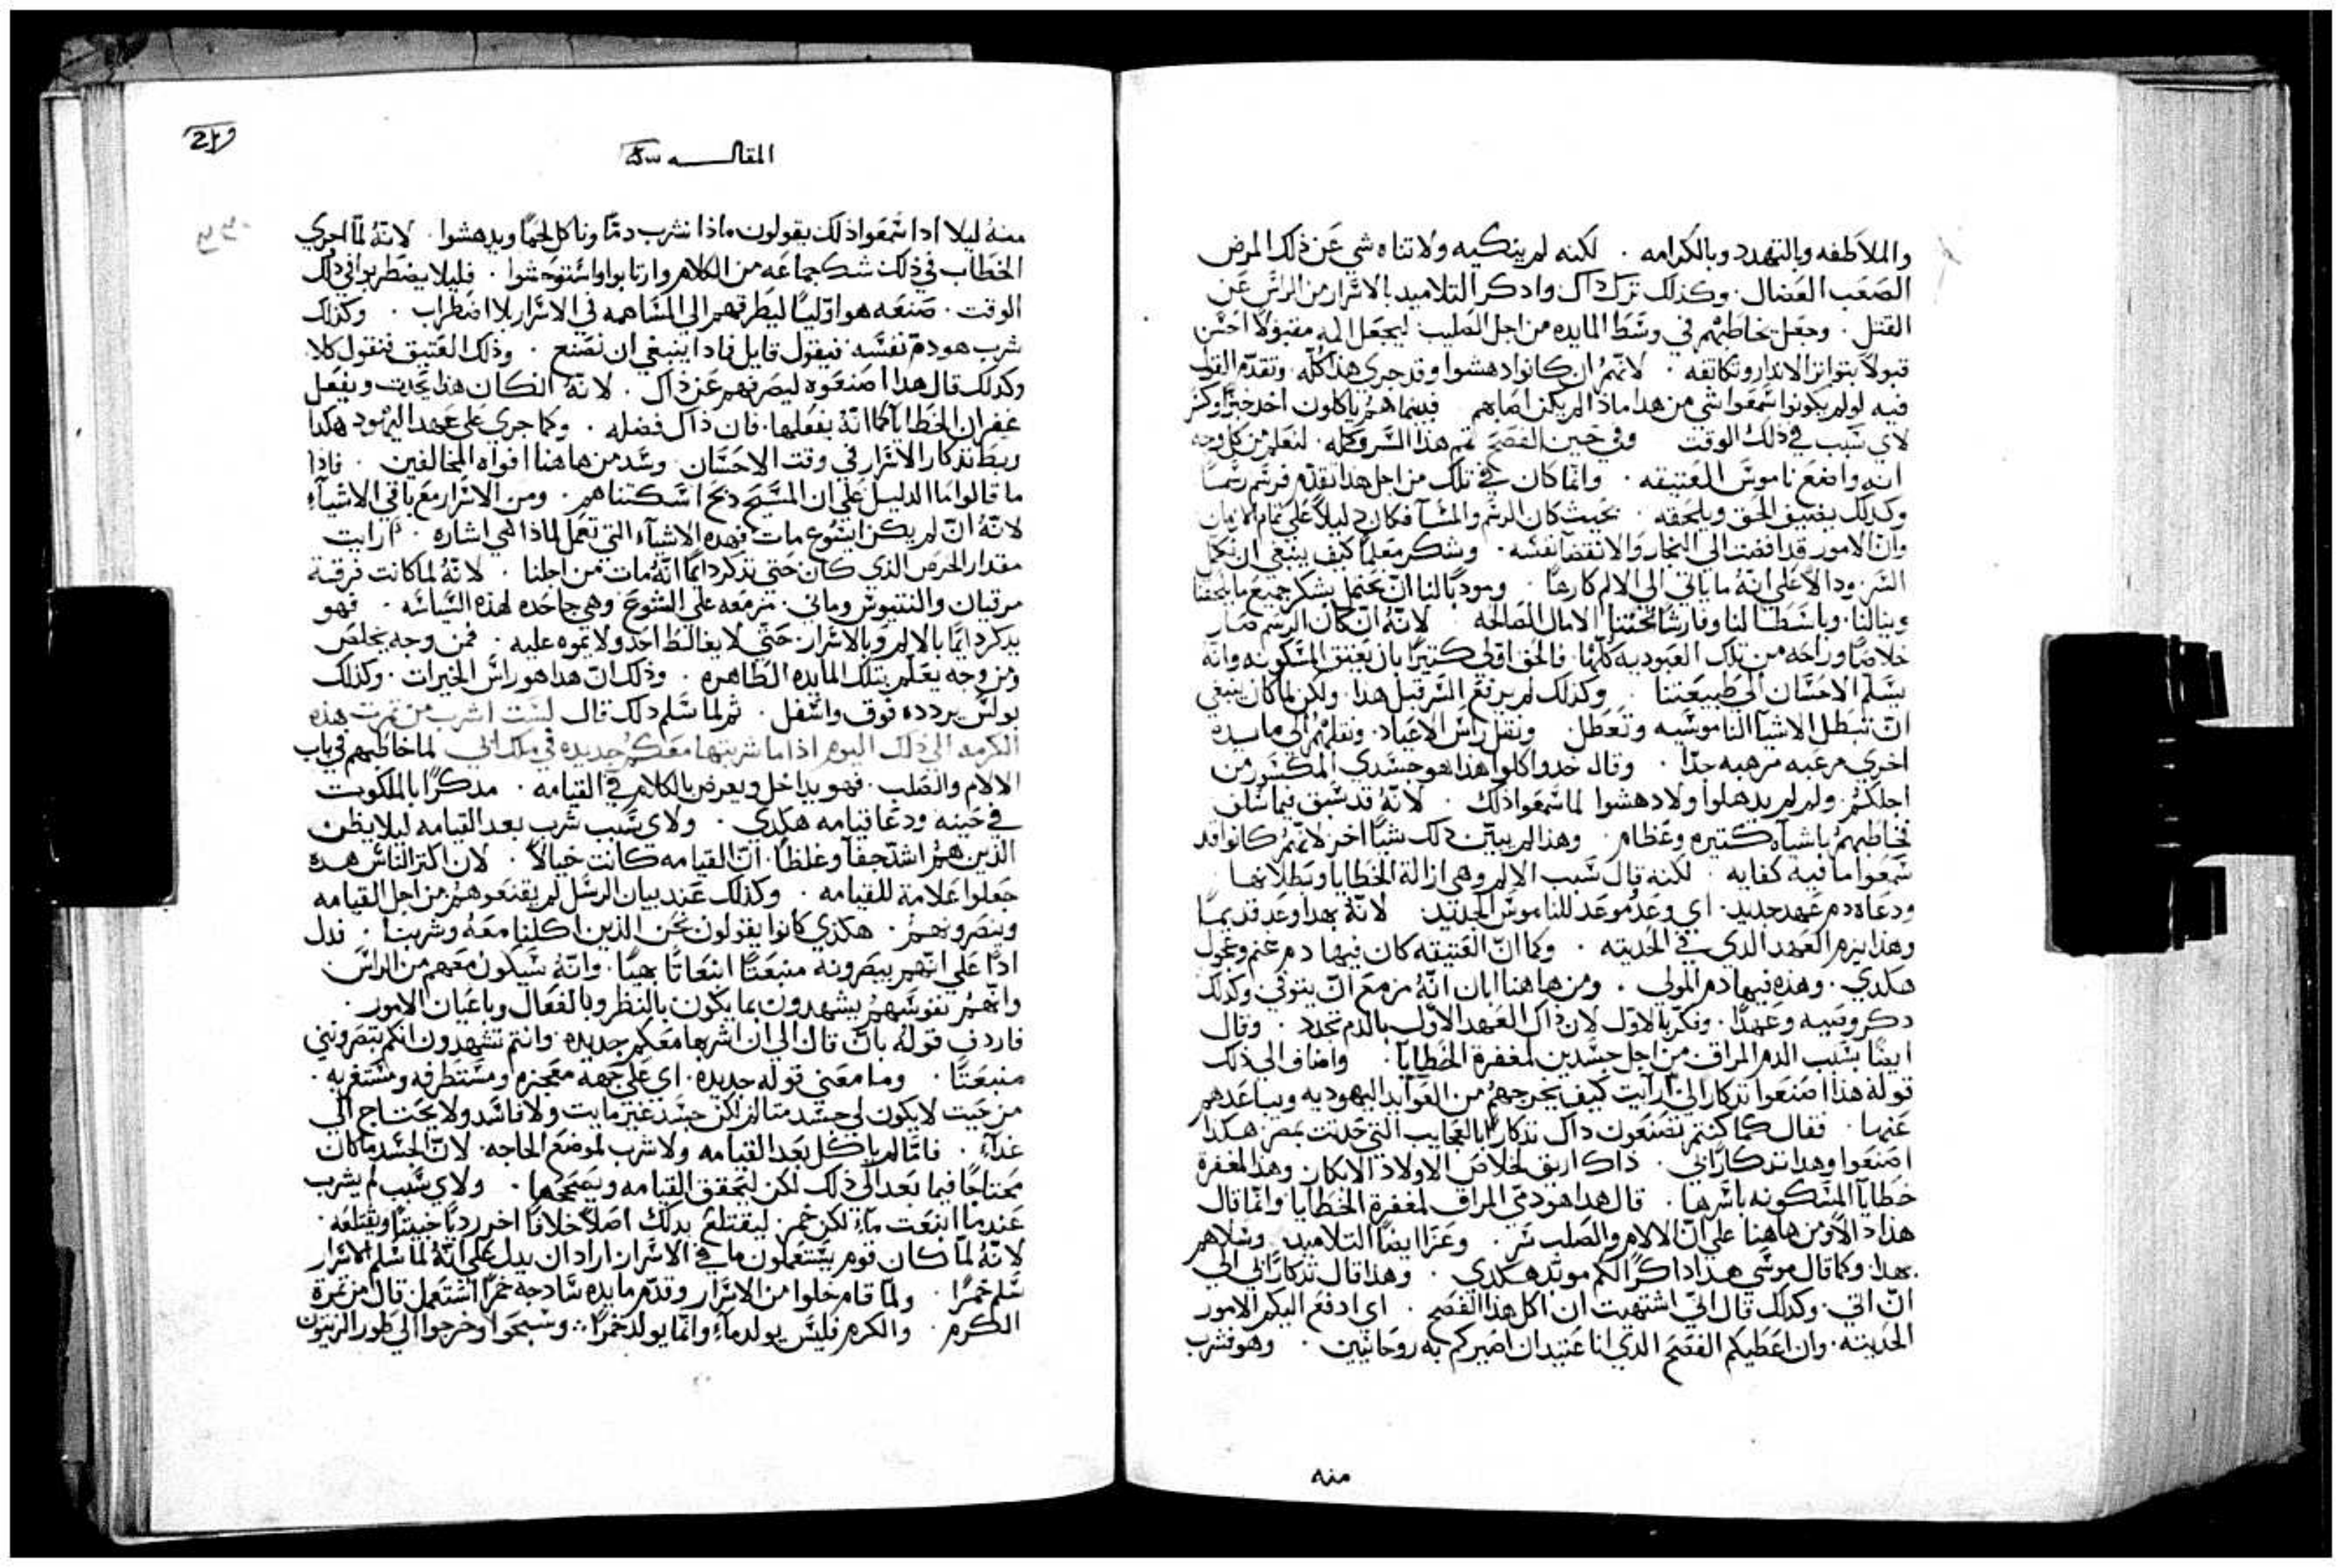 والملاطفه وبالتهدد وبالكرامه . لكنه لم ينكيه ولاتناه شي عن ذلك المرض
الصعب العضال . وكذلك ترك داك وادكر التلاميد بالاسرار من الراس عن
القتل . وجعل يخاطبهم في وسط المايده من اجل الصليب ليجعل المه مقبولاً احسن
قبولاً بتواتر الاندار وتكاتفه . لانهم ان كانوا دهشوا وقد جري هذا كله . وتقدم القول
فيه لو لم يكونوا سمعوا شي من هدا مادا لم يكن اصابهم فبينما هم ياكلون اخد خبزاً وكسر
لاي سبب في ذلك الوقت وفي حين الفصح تم هذا السر وكله . لنعلم من كل وجه
انه واضع ناموس العتيقه . وانما كان في تلك من اجل هدا تقدم فرسم رسماً
وكدلك يفتيق الحق ويلحقه . بحيث كان الرسم والمسآ فكان دليلاً على تمام الازمان
وان الامور قد افضت الي النجاز والانقضآ نفسه . وشكر معلماً كيف ينبغي ان نكمل
السر . ودالاً على انه ما ياتي الي الالم كارهاً . ومودباً لنا ان نحتمل بشكر جميع ما يلحقنا
وينالنا . وباسطاً لنا وفارشاً تحتنا الامال الصالحه لانه ان كان الرسم صار
خلاصاً وراحه من تلك العبوديه كلها . فالحق اولي كتيراً بان يعتق المسكونه وانه
يسلم الاحسان الي طبيعتنا . وكدلك لم يرفع السر قبل هدا . ولكن لما كان ينبغي
ان تبطل الاشيآ الناموسيه وتعطل ونقل راس الاعياد . ونقلهم الي مايده
اخري مرعبه مرهبه جداً . وقال خدوا كلوا هذا هو جسدي المكسور من
اجلكم . ولم لم يدهلوا ولا دهشوا لما سمعوا ذلك . لانه قد سبق فيما سلف
فخاطبهم باشيآء كتيره وعظام . وهذا لم يبين دلك شياً اخر لانهم كانوا قد
سمعوا ما فيه كفايه . لكنه قال سبب الالم وهي ازالة الخطايا وبطلانها
ودعاه دم عهد جديد . اي وعد موعد للناموس الجديد . لانه بهدا وعد قديماً
وهذا يزم العهد الدي في الحديته . وكما ان العتيقه كان فيها دم غنم وعجول
هكدي . وهذه فيها دم المولي . ومن هاهنا ابان انه مزمع ان يتوفي وكدلك
دكر وصيه وعهداً . وفكر بالاول لان داك العهد الاول بالدم تجدد . وقال
ايضاً بسبب الدم المراق من اجل جسدين لمغفرة الخطايآ . واضاف الي ذلك
قوله هذا اصنعوا تدكاراً لي ارايت كيف يخرجهم من العوايد اليهوديه ويباعدهم
عنها . فقال كما كنتم تصنعون داك تدكاراً بالعجايب التي حدتت بمصر هكدا
اصنعوا وهدا تدكاراً لي . داك اريق لخلاص الاولاد الابكار . وهذا لمغفرة
خطايآ المسكونه باسرها . قال هدا هو دمي المراق لمغفرة الخطايآ وانما قال
هذا دالاً ومن هاهنا على ان الالام والصلب سر . وعزا ايضاً التلاميد وسلاهم
بهدا . وكما قال موسي هدا داكراً لكم موبد هكدي . وهذا قال تدكاراً لي الي
ان اتي . وكدلك قال اني اشتهيت ان اكل هدا الفصح . اي ادفع اليكم الامور
الحديته . وان اعطيكم الفصح الدي انا عتيد ان اصيركم به روحانيين . وهو فشرب
منه
المقالـــه
منه ليلا ادا سمعوا ذلك يقولون ماذا نشرب دماً وناكل لحماً ويدهشوا . لانه لما اجري
الخطاب في ذلك شك جماعه من الكلام وارتابوا واستوحشوا . فليلا يضطربوا في دلك
الوقت . صنعه هو اوليا ليطرقهم الي المساهمه في الاسرار بلا اضطراب . وكذلك
شرب هو دم نفسه فيقول قايل فمادا ينبغي ان نصنع . وذلك العتيق فنقول كلا
وكدلك قال هدا اصنعوه ليصرفهم عن ذاك . لانه ان كان هذا يحدت ويفعل
غفران الخطايآ كما انه يفعلها . فان ذاك فضله . وكما جري على عهد اليهود هكدا
ربط تدكار الاسرار في وقت الاحسان . وسد من هاهنا افواه المخالفين . فادا
ما قالوا ما الدليل على ان المسيح دبح اسكتناهم . ومن الاسرار مع باقي الاشيآء
لانه ان لم يكن ايشوع مات فهده الاشيآء التي تعمل لماذا هي اشاره . ارايت
مقدار الحرص الذي كان حتي ندكر دايماً انه مات من اجلنا . لانه لما كانت فرقة
مرقيان والنتيوس وماني . مزمعه على الشوع وهي جاحده لهذه السياسه . فهو
يدكر دايماً بالالم وبالاسرار . حتي لا يغالط احد ولا يموه عليه . فمن وجه يخلص
ومن وجه يعلم بتلك المايده الطاهره . وذلك ان هدا هو راس الخيرات . وكذلك
بولس يردده فوق واسفل . ثم لما سلم دلك قال لست اشرب من تمرت هذه
الكرمه الي ذلك اليوم اذا ما شربتها معكم جديده في ملك ابي لما خاطبهم في باب
الالام والصلب . فهو يداخل ويعرض بالكلام في القيامه . مدكراً بالملكوت
في حينه ودعا قيامه هكدي . ولاي سبب شرب بعد القيامه ليلا يظن
الذين هم اشد جفآ وغلظاً . ان القيامه كانت خيالاً . لان اكتر الناس هده
جعلوا علامة للقيامه . وكدلك عند بيان الرسل لم يقنعوهم من اجل القيامه
ويبصرونهم . هكذي كانوا يقولون نحن الذين اكلنا معه وشربنا . فدل
اداً على انهم يبصرونه منبعتاً انبعاتاً بهياً . وانه سيكون معهم من الراس
وانهم نفوسهم يشهدون بما يكون بالنظر وبالفعال وباعيان الامور .
فاردف قوله بان قال الي ان اشربها معكم جديده . وانتم تشهدون انكم تبصروني
منبعتاً . وما معني قوله جديده . اي على جهة معجزه ومستطرفه ومستغربه .
من حيت لا يكون لي جسد متالم لكن جسد غير مايت ولا فاسد ولا يحتاج الي
غدآء . فامّا لم ياكل بعد القيامه ولا شرب لموضع الحاجه . لان الجسد ما كان
محتاجاً فيما بعد الي ذلك لكن ليحقق القيامه ويصححها . ولاي سبب لم يشرب
عندما انبعت مآء لكن خمر . ليقتلع بدلك اصلاً خلافاً اخر رديا خبيتاً ويقتلعه .
لانه لما كان قوم يستعملون ما في الاسرار اراد ان يدل على انه لما سلم الاسرار
سلم خمراً . ولما قام خلوا من الاسرار وقدم مايده سادجه خمراً استعمل قال من تمرة
الكرم . والكرم فليس يولد مآء وانما يولد خمراً . وسبحوا وخرجوا الي طور الزيتون